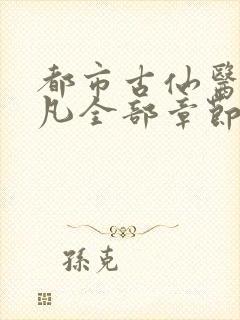 都市古仙醫
凡全部章節
孫克